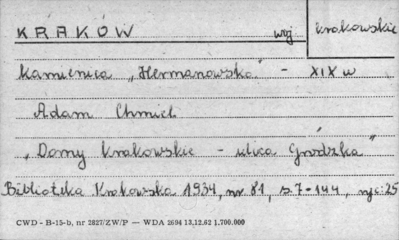 KRAKÓW woj. krakowskie
Kamienica „Hermanowska" - XIX w
Adam Chmiel
„Domy krakowskie - ulica Grodzka"
Biblioteka Krakowska 1934, nr 81, s.7-144, ryc:25
CWD - B-15-b, nr 2827/ZW/P — WDA 2694 13.12.62 1.700.000